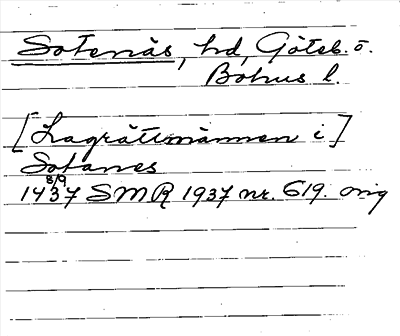 Sotenäs, hd, Göteb. o.
Bohus l.
[Lagrättsmännen i]
Sotanes
8/9
1437 SMR 1937 nr. 619. orig